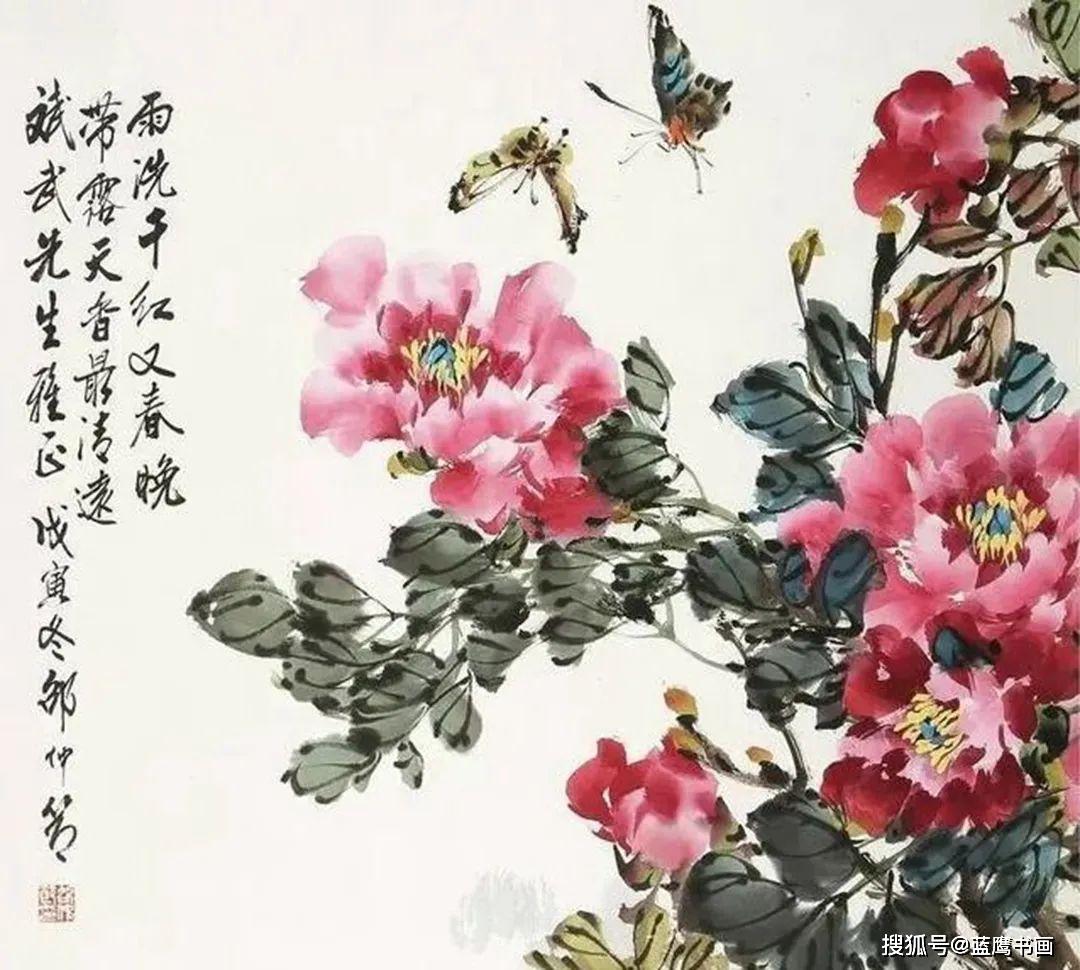 雨洗千红又春晚
带露天香最清远
斌武先生雅正 戊寅冬邵仲节
搜狐号@蓝鹰书画